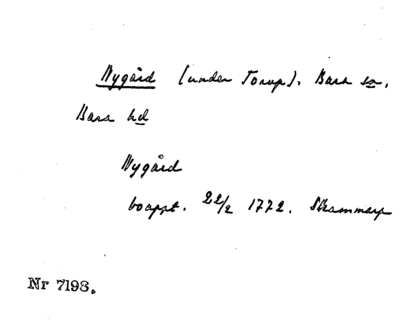 Nygård (under Torup). Bara sn,
Bara hd
Nygård
bouppt. 22/2 1772. Skammarp
Nr 7198.